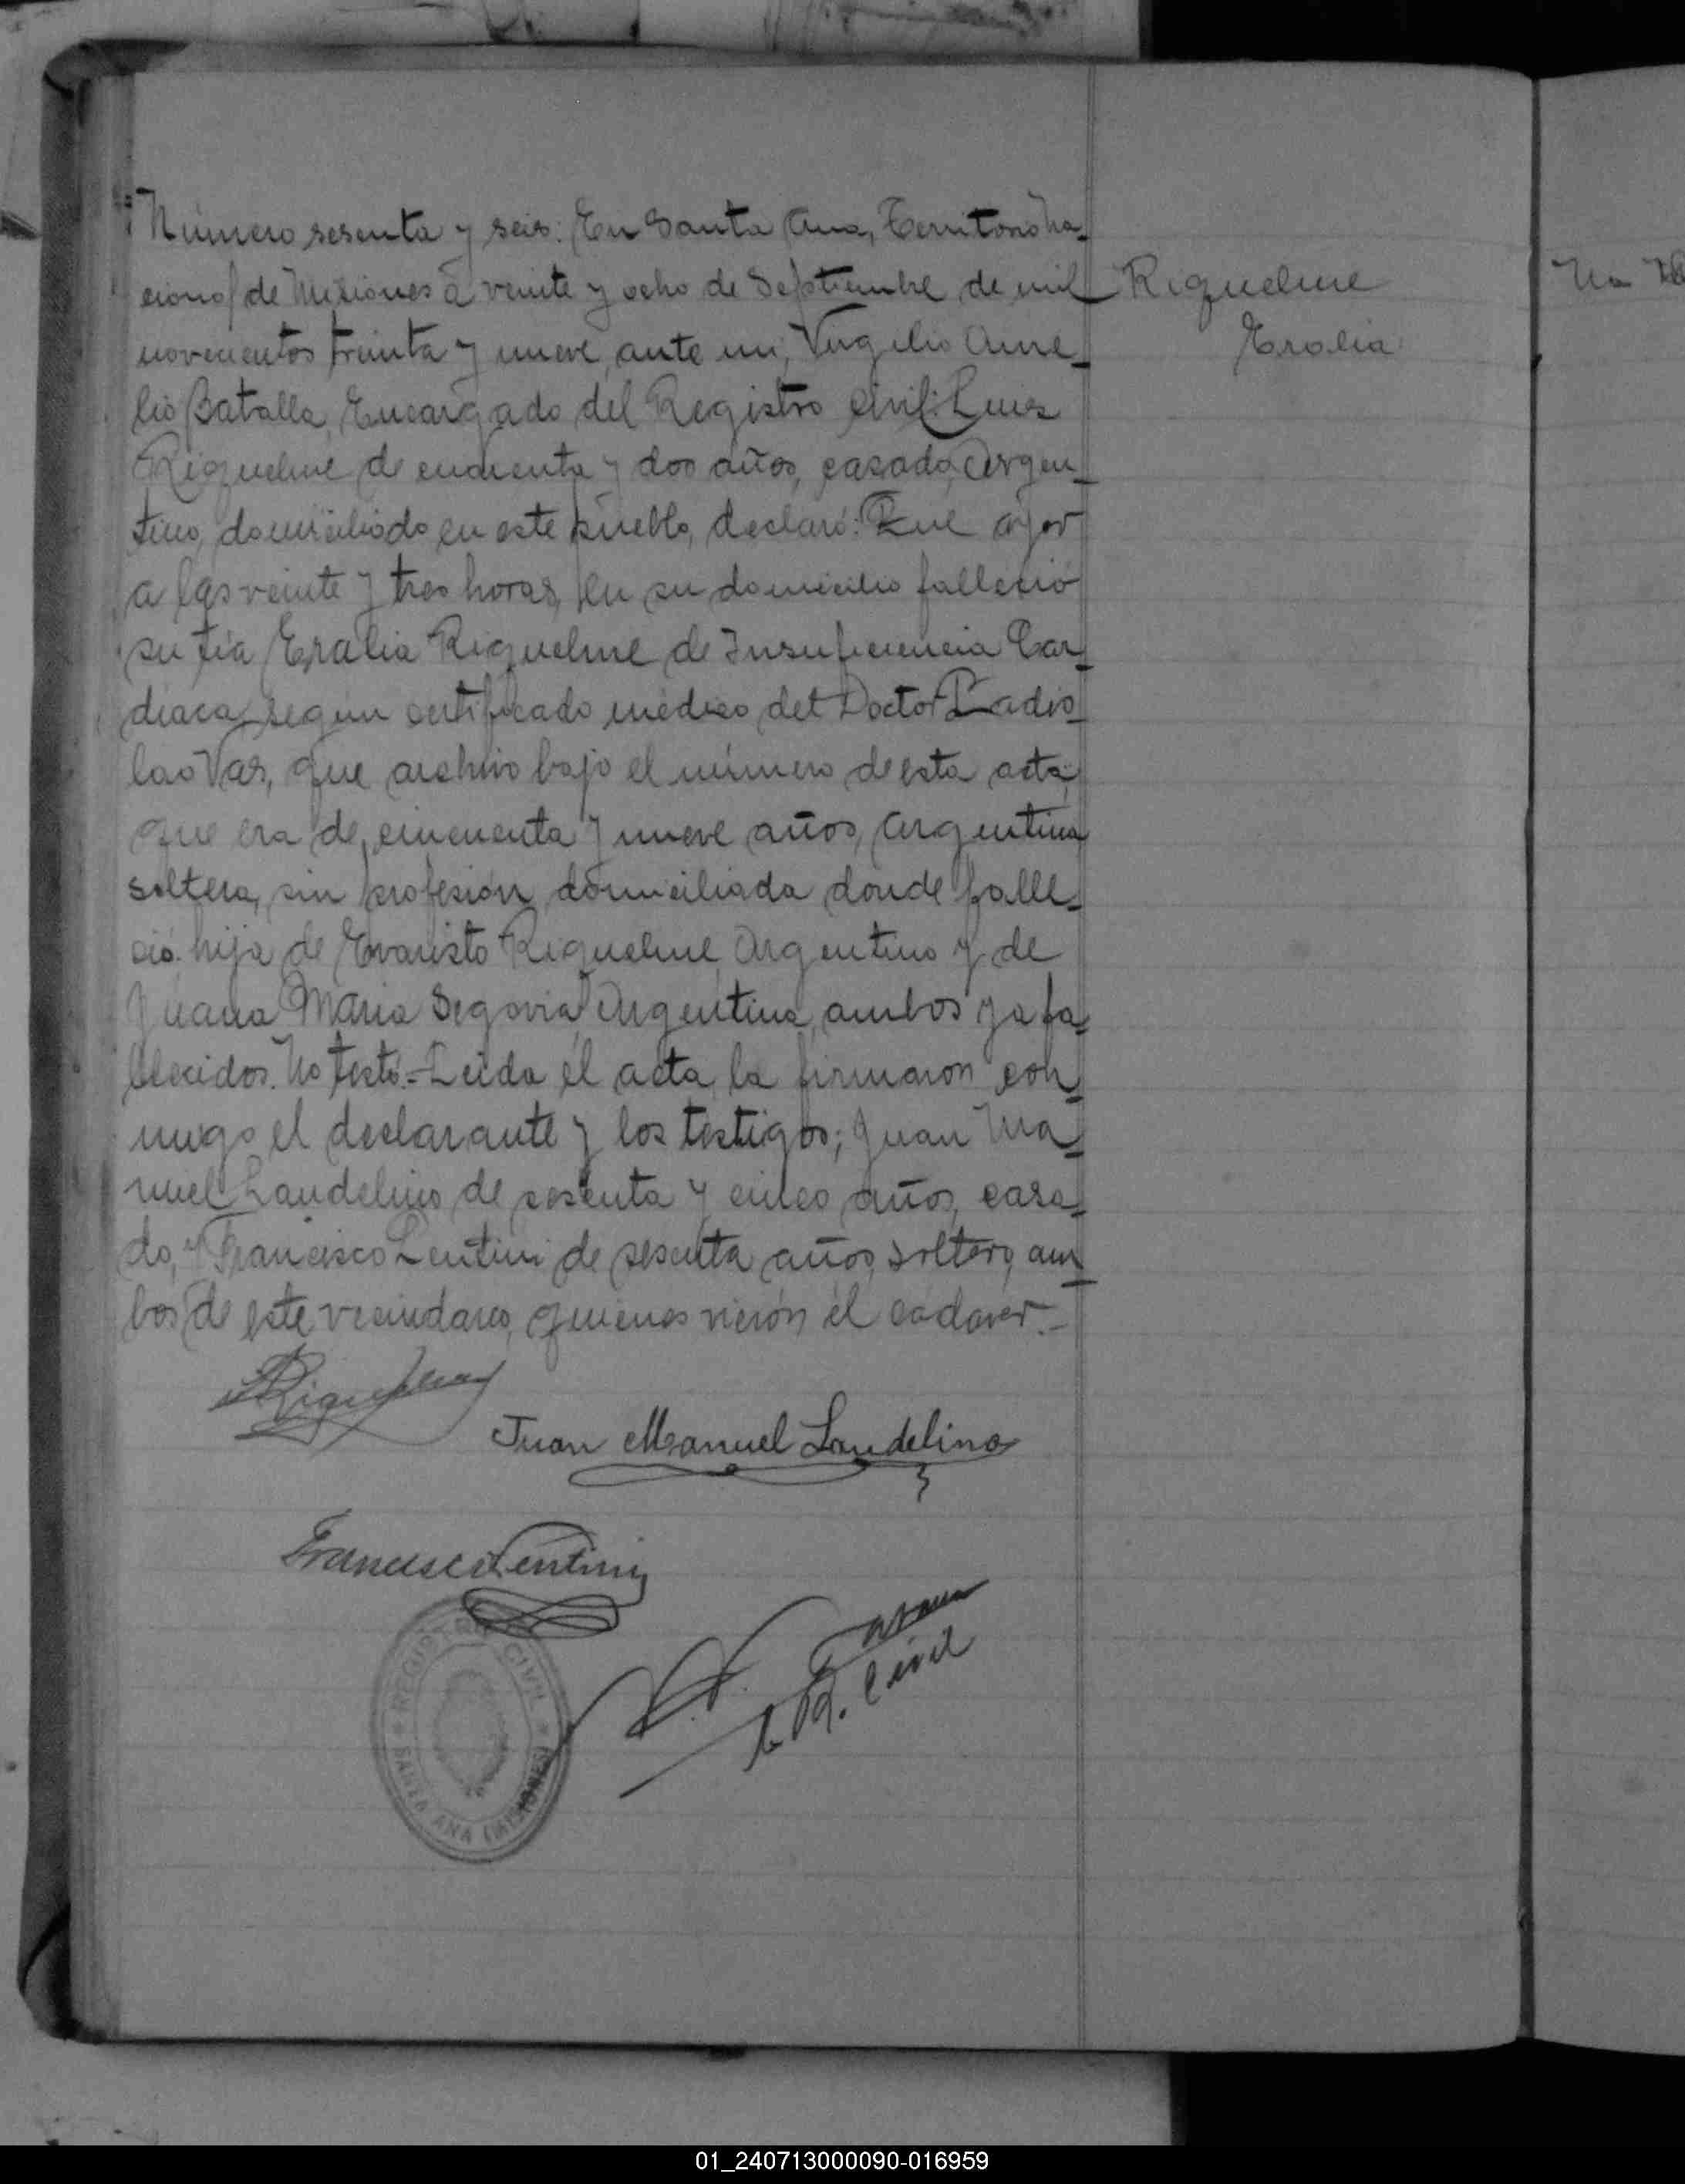 Número sesenta y seis: En Santa Ana, Territorio Na-
cional de Misiones a veinte y ocho de Septiembre de mil
novecientos treinta y nueve, ante mi, Virgilio Ame-
lio Batalla, Encargado del Registro Civil: Luis
Riquelme de cuarenta y dos años, casado, Argen-
tino, domiciliado en este pueblo, declaró: Que ayer
a las veinte y tres horas, en su domicilio falleció
su tía Eralia Riquelme de Insuficiencia Car-
diaca, segun certificado médico del Doctor Ladis-
lao Vas, que archivo bajo el número de esta acta,
que era de cincuenta y nueve años, Argentina
soltera, sin profesión, domiciliada donde falle-
ció, hija de Evaristo Riquelme, Argentino y de
Juana Maria Segovia, Argentina, ambos ya fa-
llecidos. No testó.- Leida el acta, la firmaron con-
migo el declarante y los testigos; Juan Ma-
nuel Laudelino de sesenta y cinco años, casa-
do, y Francisco Lentini de sesenta años, soltero, am-
bos de este vecindario, quienes vierón el cadaver.-
Riquelme
Eralia
Riquelme
Juan Manuel Laudelino
Francisco Lentini
R. Civil
REGISTRO CIVIL
SANTA ANA (MISIONES)
01_240713000090-016959